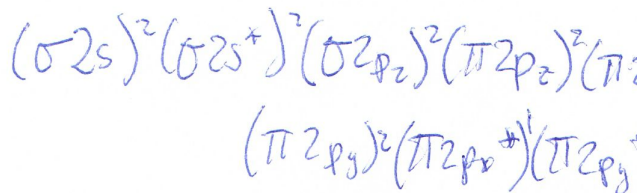 (σ2s)²(σ2s*)²(σ2p_z)²(π2p_z)²(π2
(π2p_y)²(π2p_x*)¹(π2p_y*